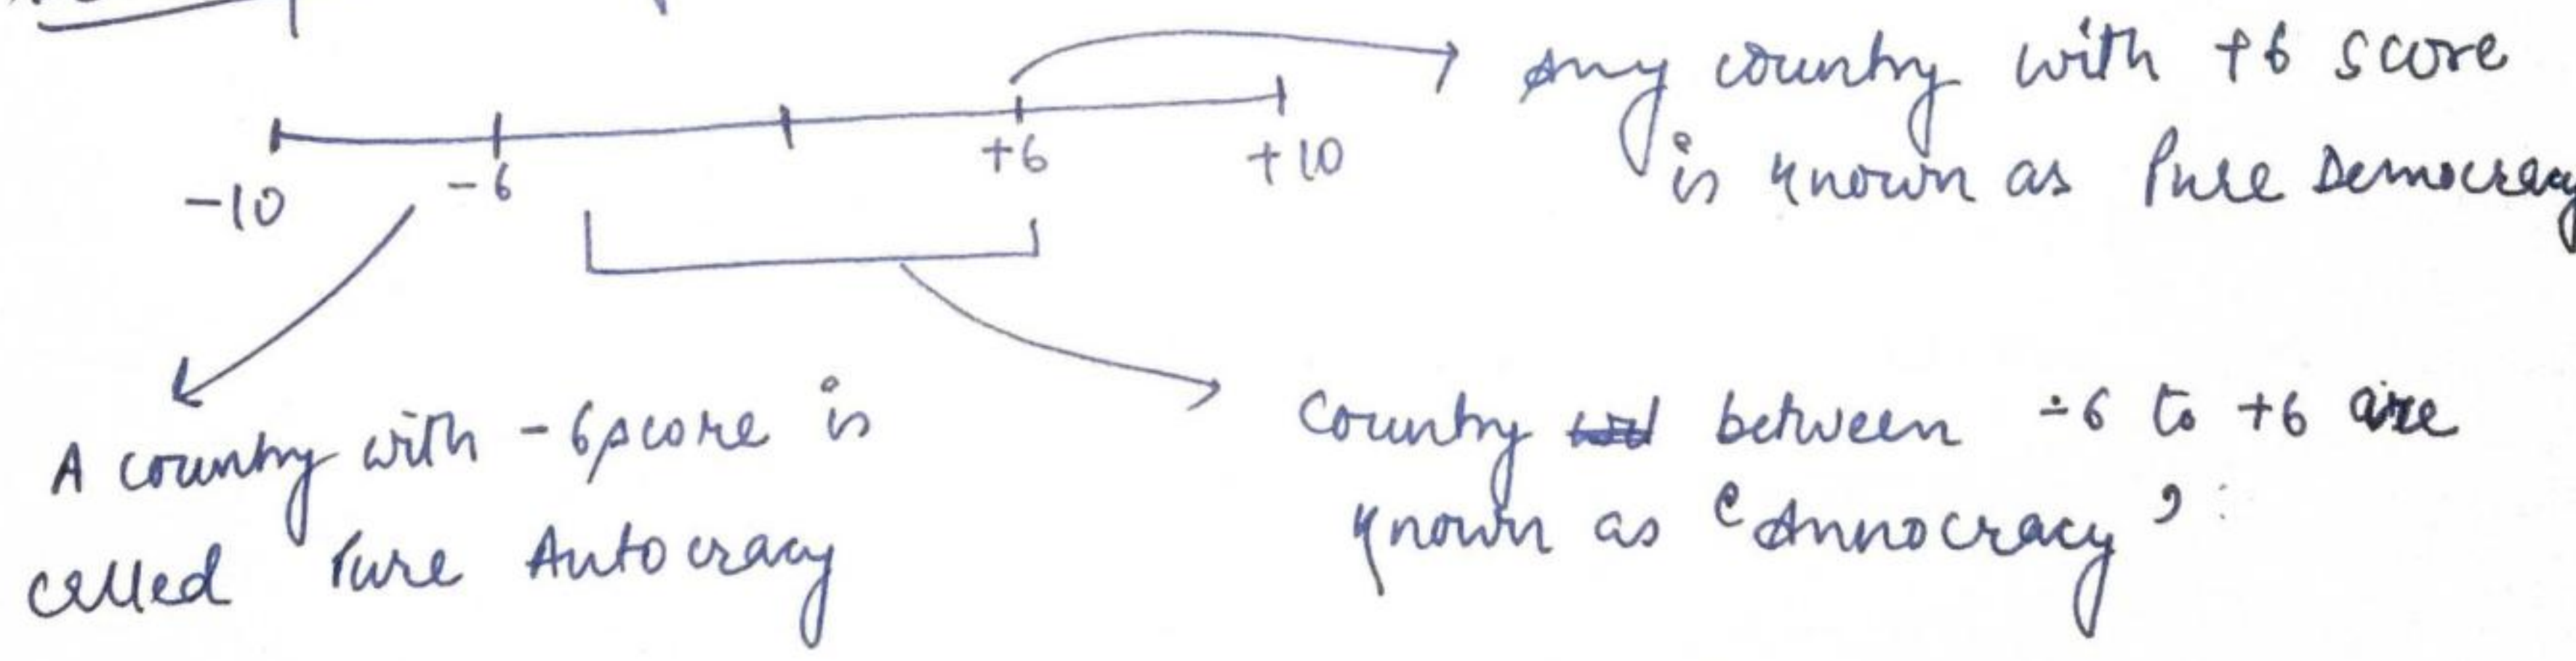 Any country with +6 score
is known as Pure Democracy
-10
-6
+6
+10
A country with -6 score is
called Pure Autocracy
Country between -6 to +6 are
known as 'Annocracy'